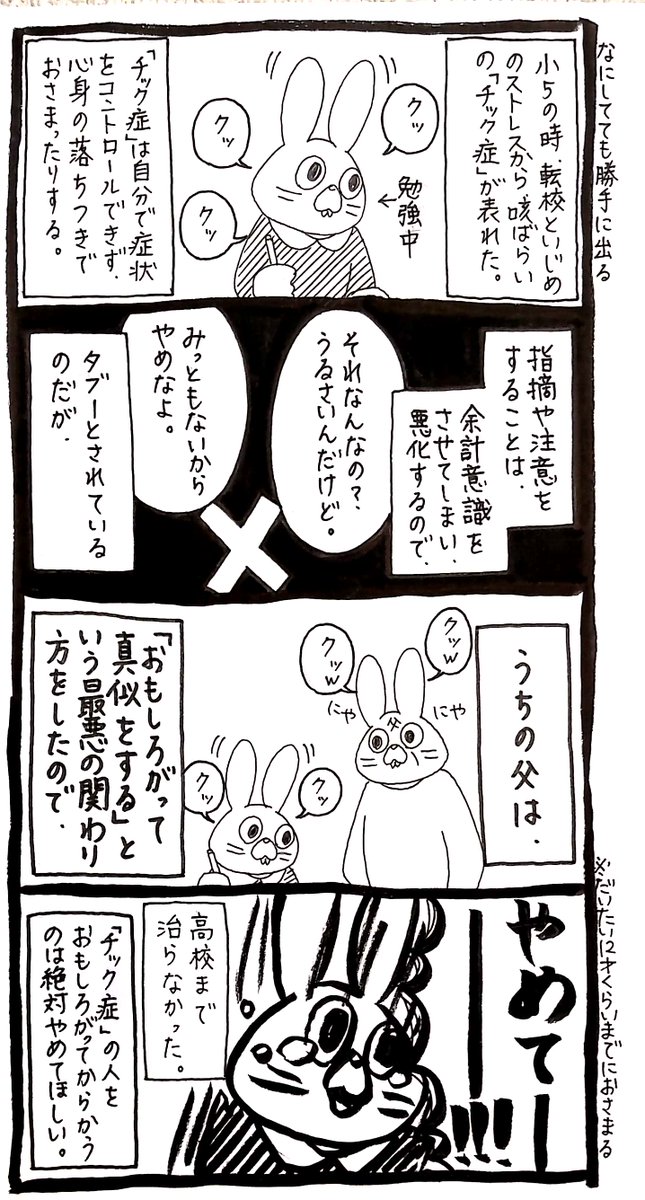 なにしてても勝手に出る
小5の時、転校といじめ
のストレスから咳ばらい
の「チック症」が表れた。
クッ
クッ
クッ
←勉強中
「チック症」は自分で症状
をコントロールできず、
心身の落ちつきで
おさまったりする。
指摘や注意を
することは、
余計意識を
させてしまい、
悪化するので、
それなんなの?
うるさいんだけど。
みっともないから
やめなよ。
タブーとされている
のだが、
うちの父は、
クッw
クッw
にや
にや
父
クッ
クッ
「おもしろがって
真似をする」と
いう最悪の関わり
方をしたので、
※だいたい12才くらいまでにおさまる
やめてー
ー!!!
高校まで
治らなかった。
「チック症」の人を
おもしろがってからかう
のは絶対やめてほしい。